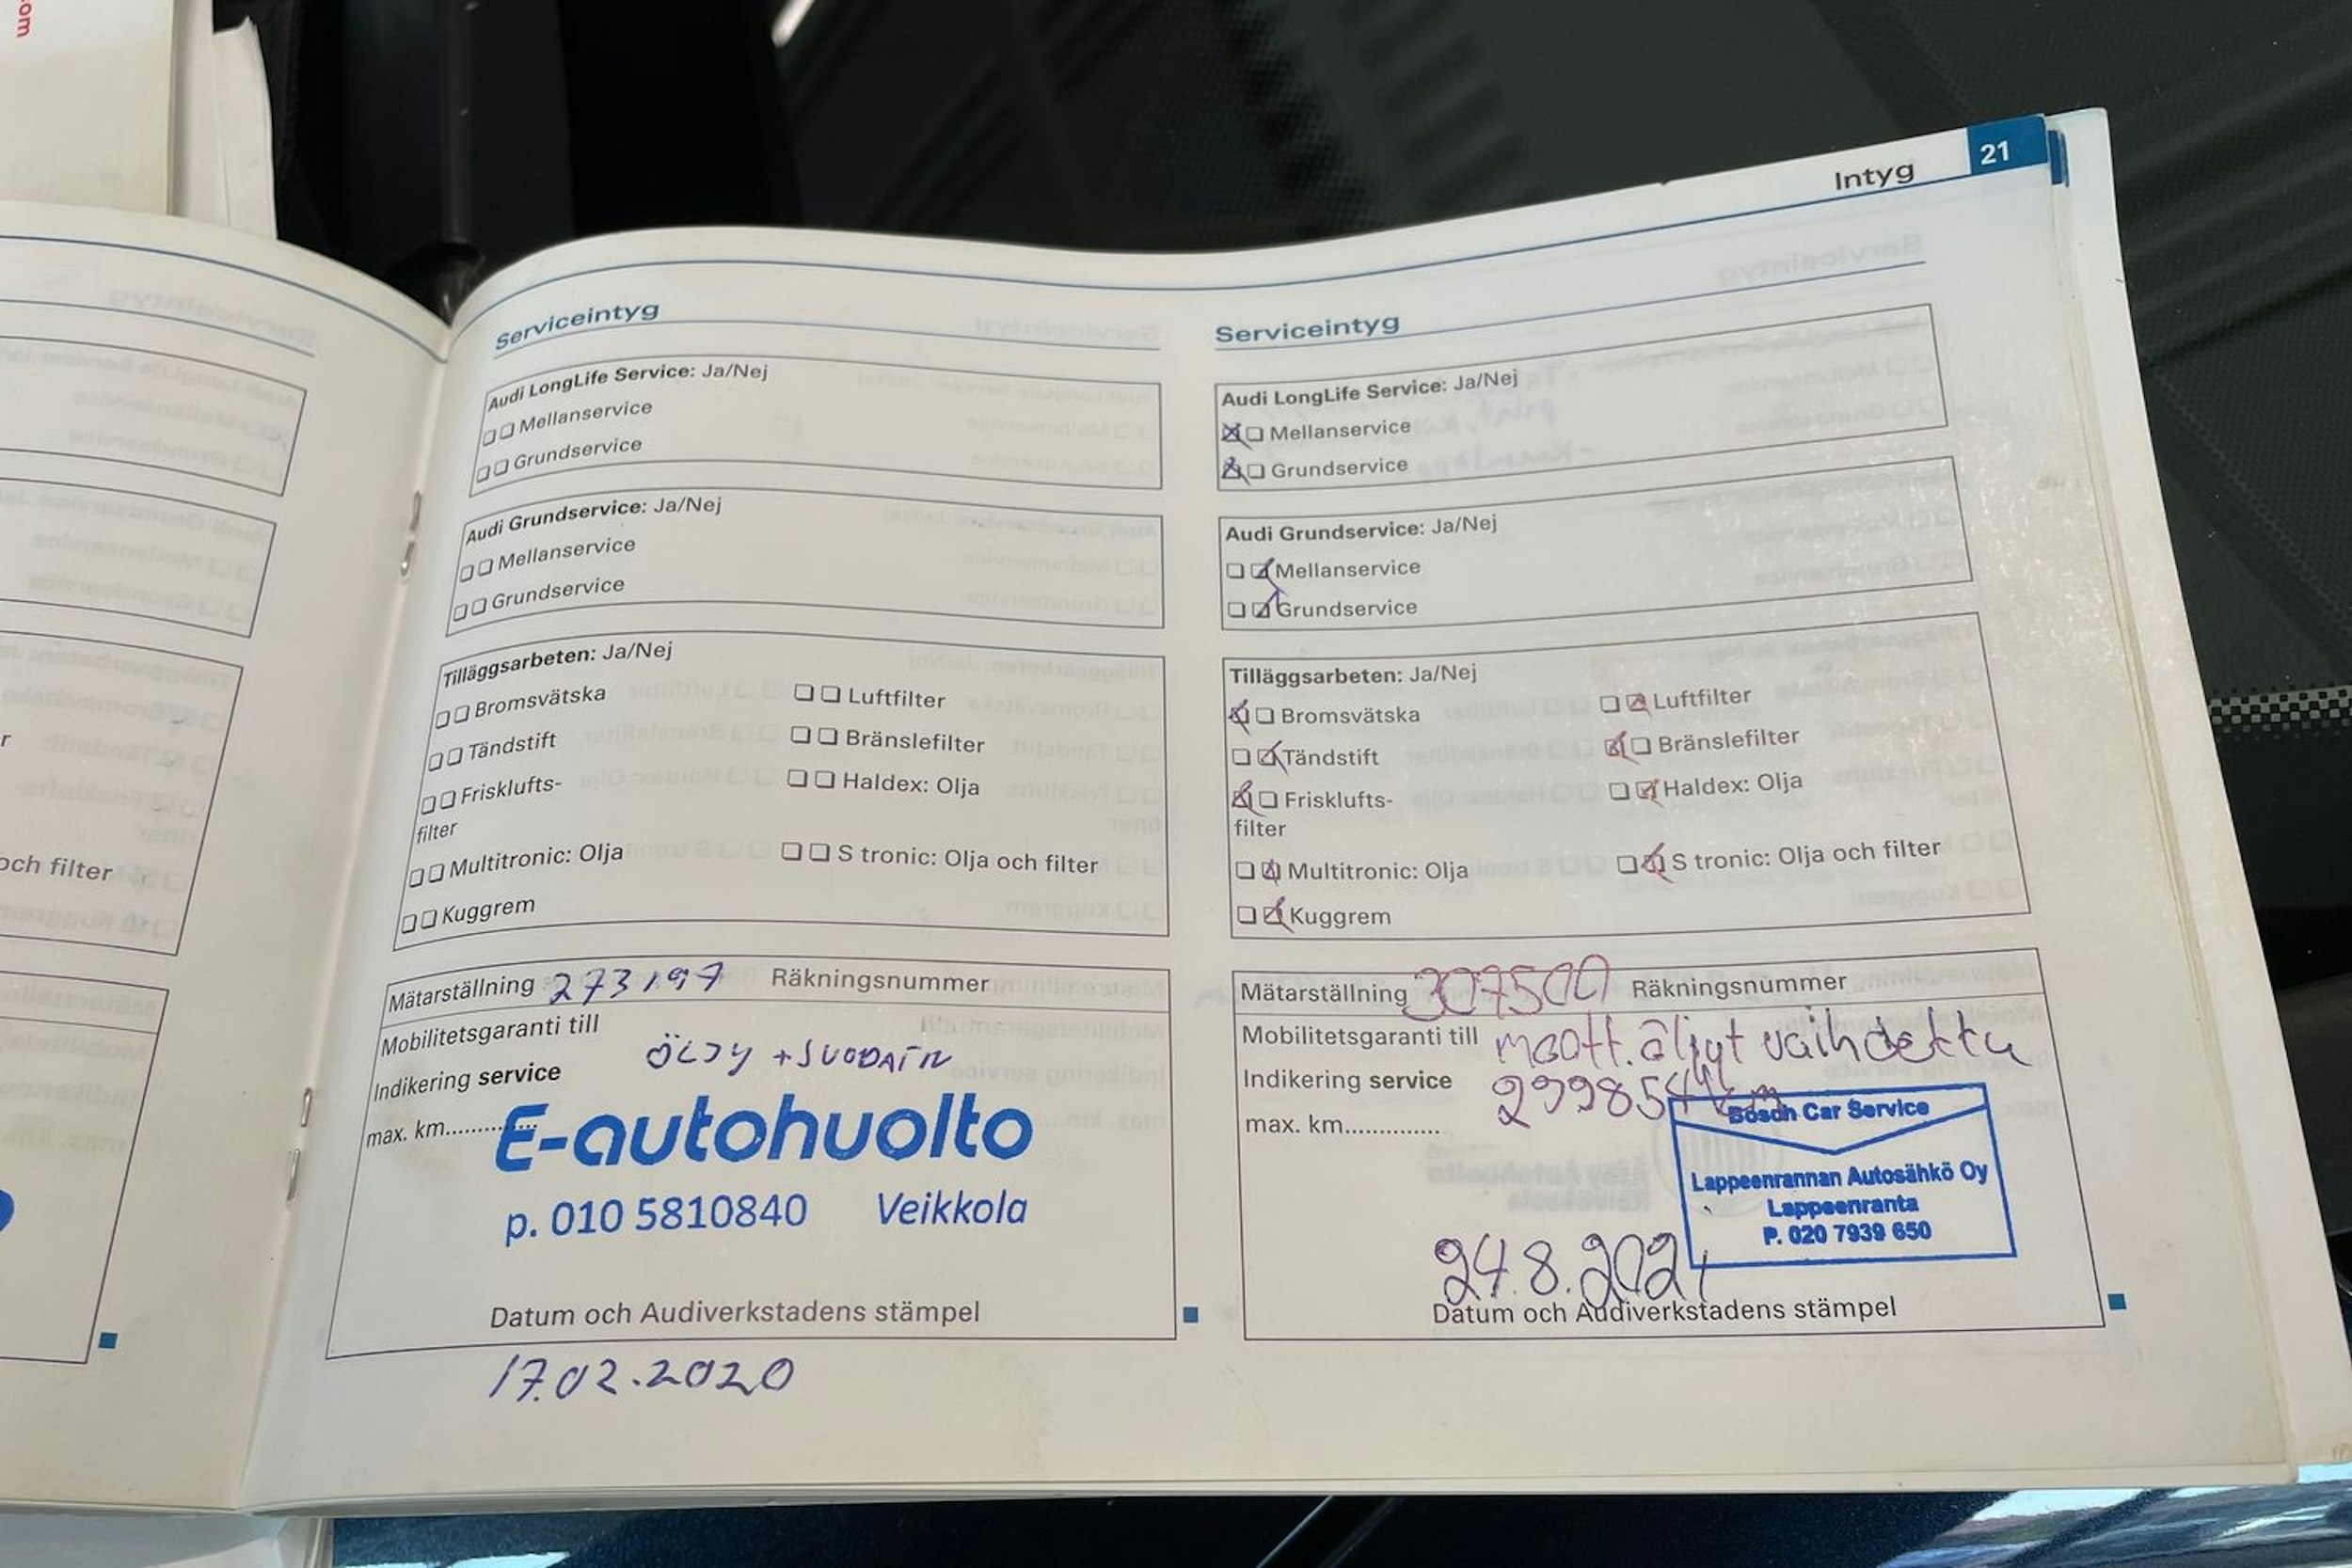 om
Intyg 21
r
och filter
Serviceintyg
Audi LongLife Service: Ja/Nej
Mellanservice
Grundservice
Audi Grundservice: Ja/Nej
Mellanservice
Grundservice
Tilläggsarbeten: Ja/Nej
Bromsvätska Luftfilter
Tändstift Bränslefilter
Frisklufts- Haldex: Olja
filter
Multitronic: Olja S tronic: Olja och filter
Kuggrem
Mätarställning 273197 Räkningsnummer
Mobilitetsgaranti till
ÖLJY + SUODATIN
Indikering service
max. km..............
E-autohuolto
p. 010 5810840 Veikkola
Datum och Audiverkstadens stämpel
17.02.2020
Serviceintyg
Audi LongLife Service: Ja/Nej
Mellanservice
Grundservice
Audi Grundservice: Ja/Nej
Mellanservice
Grundservice
Tilläggsarbeten: Ja/Nej
Bromsvätska Luftfilter
Tändstift Bränslefilter
Frisklufts- Haldex: Olja
filter
Multitronic: Olja S tronic: Olja och filter
Kuggrem
Mätarställning 307500 Räkningsnummer
Mobilitetsgaranti till moott. öljyt vaihdettu
Indikering service 299854 km
max. km..............
Bosch Car Service
Lappeenrannan Autosähkö Oy
Lappeenranta
P. 020 7939 650
24.8.2021
Datum och Audiverkstadens stämpel